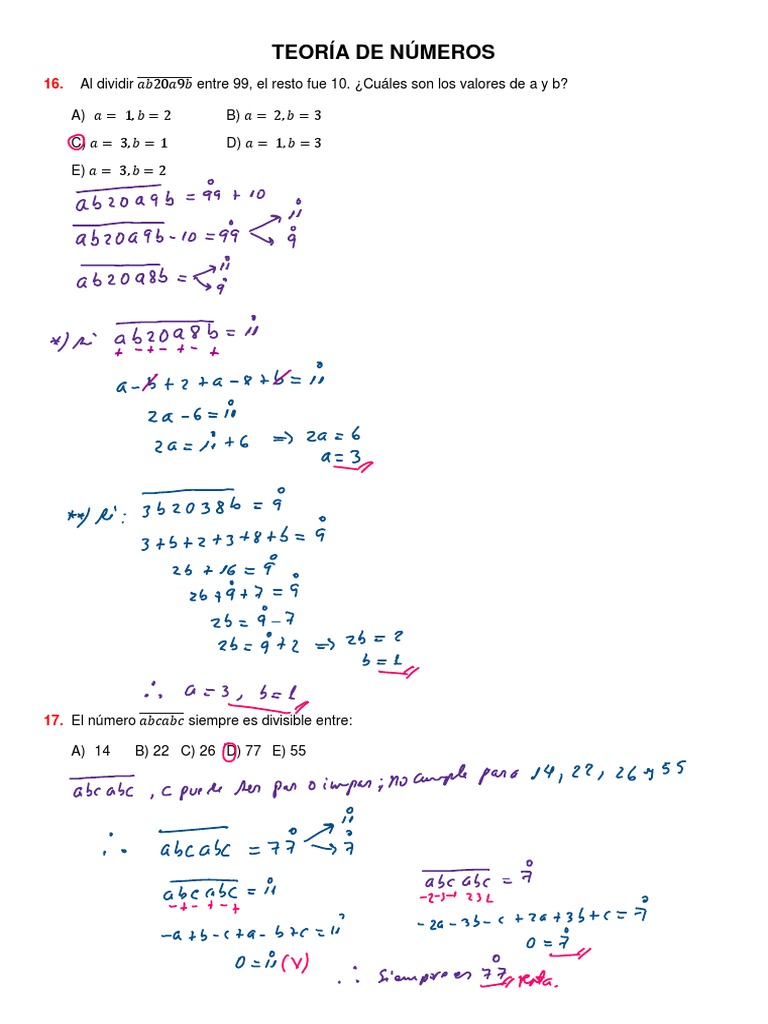 TEORÍA DE NÚMEROS
16. Al dividir ab20a9b entre 99, el resto fue 10. ¿Cuáles son los valores de a y b?
A) a = 1, b = 2 B) a = 2, b = 3
C) a = 3, b = 1 D) a = 1, b = 3
E) a = 3, b = 2
ab20a9b = 99 + 10
ab20a9b - 10 = 99 11
9
ab20a8b = 11
9
*) si ab20a8b = 11
+ - + - + - +
a - b + 2 + a - 8 + b = 11
2a - 6 = 11
2a = 11 + 6 => 2a = 6
a = 3
**) si: 3b2038b = 9
3 + b + 2 + 3 + 8 + b = 9
2b + 16 = 9
2b + 9 + 7 = 9
2b = 9 - 7
2b = 9 + 2 => 2b = 2
b = 1
∴ a = 3, b = 1
17. El número abcabc siempre es divisible entre:
A) 14 B) 22 C) 26 D) 77 E) 55
abcabc, c puede ser par o impar; no cumple para 14, 22, 26 y 55
∴ abcabc = 77 11
7
abcabc = 11
- + - + - +
-a + b - c + a - b + c = 11
0 = 11 (V)
abcabc = 7
-2-3-1 2 3 1
-2a - 3b - c + 2a + 3b + c = 7
0 = 7
∴ Siempre es 77 rpta.